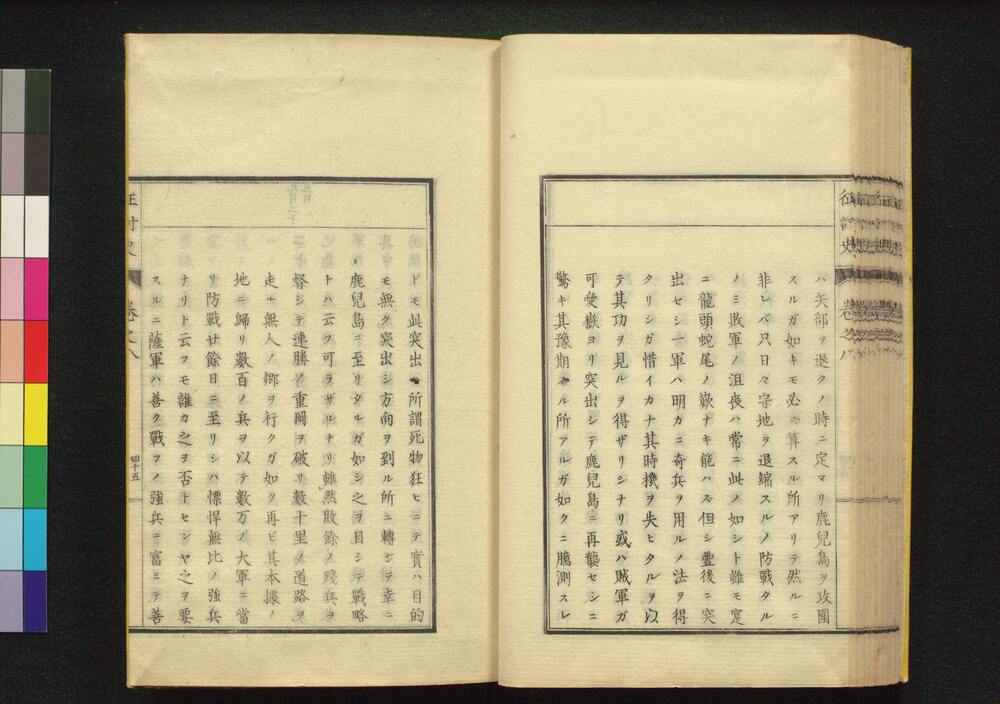 征討史
卷之八
ハ矢部ヲ退クノ時ニ定マリ鹿兒島ヲ攻圍
スルガ如キモ必ズ算スル所アリテ然ルニ
非レバ只日々守地ヲ退縮スルノ防戰タル
ノミ敗軍ノ沮喪ハ常ニ此ノ如シト雖モ寔
ニ龍頭蛇尾ノ歎ナキ能ハズ但シ豊後ニ突
出セシ一軍ハ明カニ奇兵ヲ用ルノ法ヲ得
タリシガ惜イカナ其時機ヲ失ヒタルヲ以
テ其功ヲ見ルヲ得ザリシナリ或ハ賊軍ガ
可愛嶽ヨリ突出シテ鹿兒島ニ再襲セシニ
驚キ其豫期スル所アルガ如クニ臆測スレ
ドモ此突出ハ所謂死物狂ヒニテ實ハ目的
モ無ク突出シ方向ヲ到ル所ニ轉ジテ幸ニ
鹿兒島ニ至リタルガ如シ之ヲ目シテ戰略
トハ云フ可ラザルナリ雖然敗餘ノ殘兵ヲ
督シテ連勝ノ重圍ヲ破リ數十里ノ道路ヲ
走ル無人ノ鄉ヲ行クガ如ク再ビ其本據ノ
地ニ歸リ數百ノ兵ヲ以テ數万ノ大軍ニ當
リ防戰廿餘日ニ至リシハ慓悍無比ノ強兵
ナリト云フモ誰カ之ヲ否トセンヤ之ヲ要
スルニ薩軍ハ善ク戰フノ強兵ニ富ミテ善
征討史
卷之八
四十五